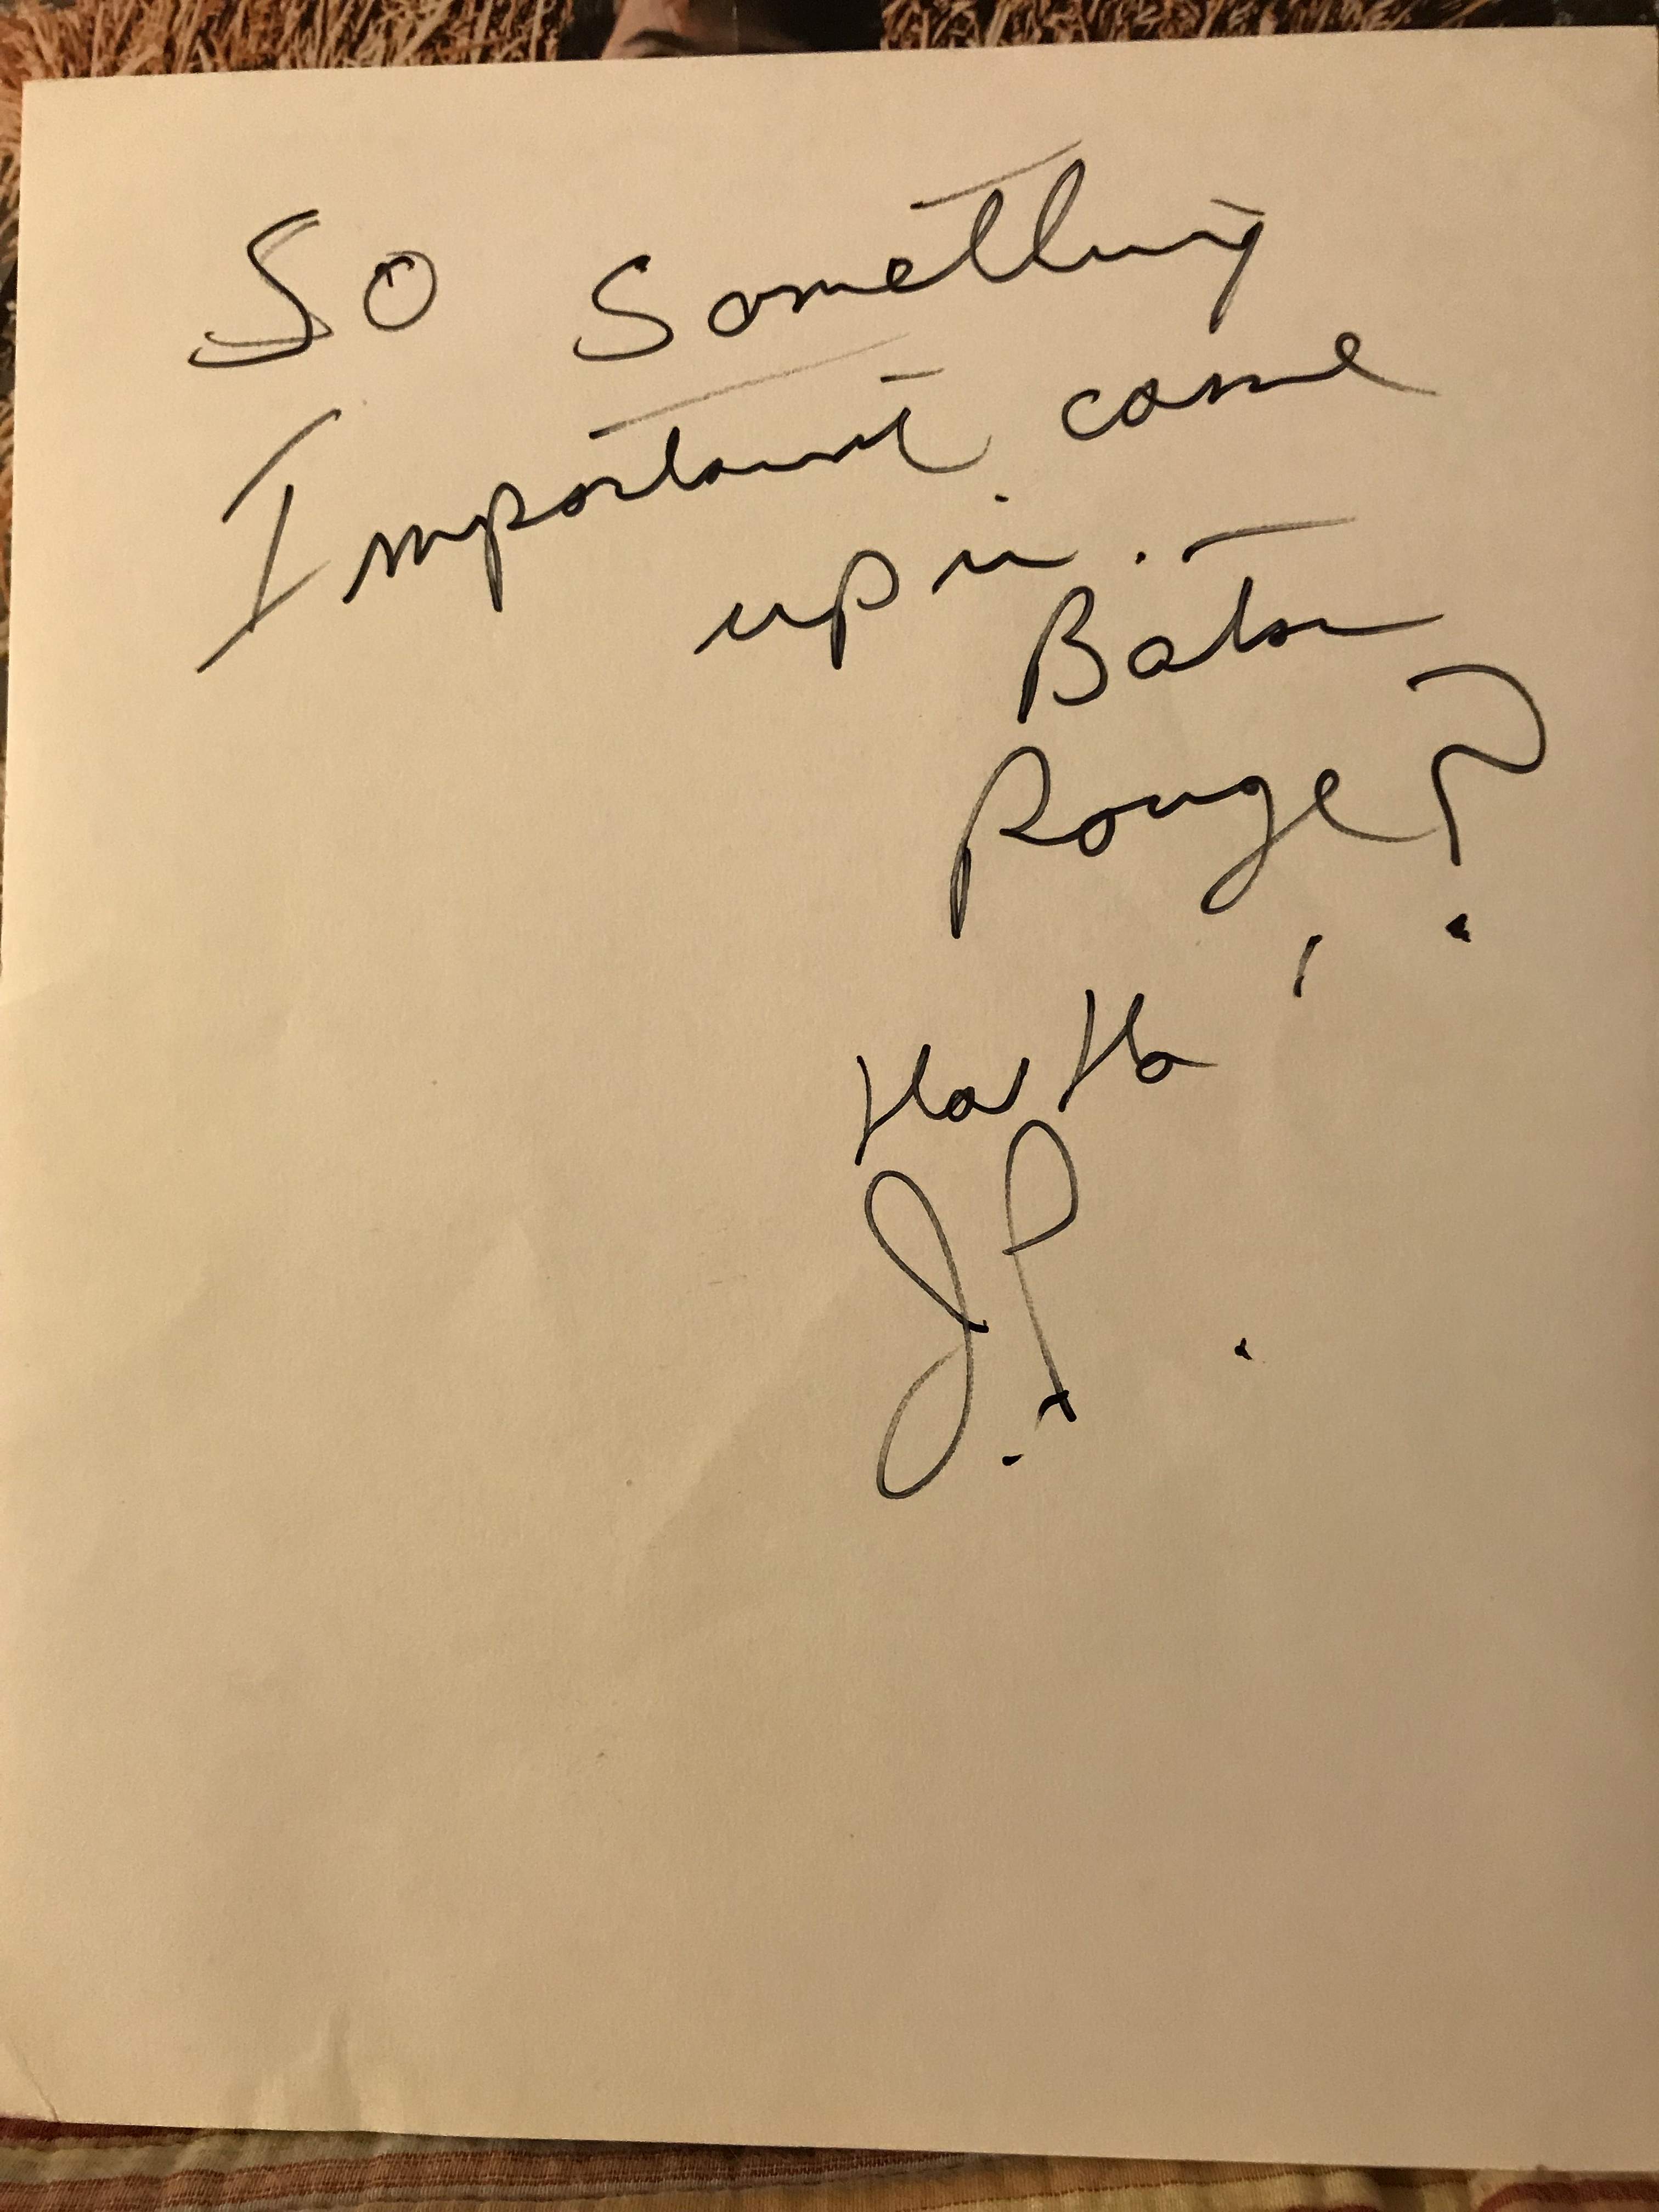 So Something
Important came
up in
Baton
Rouge?
Ha Ha!
J.P.